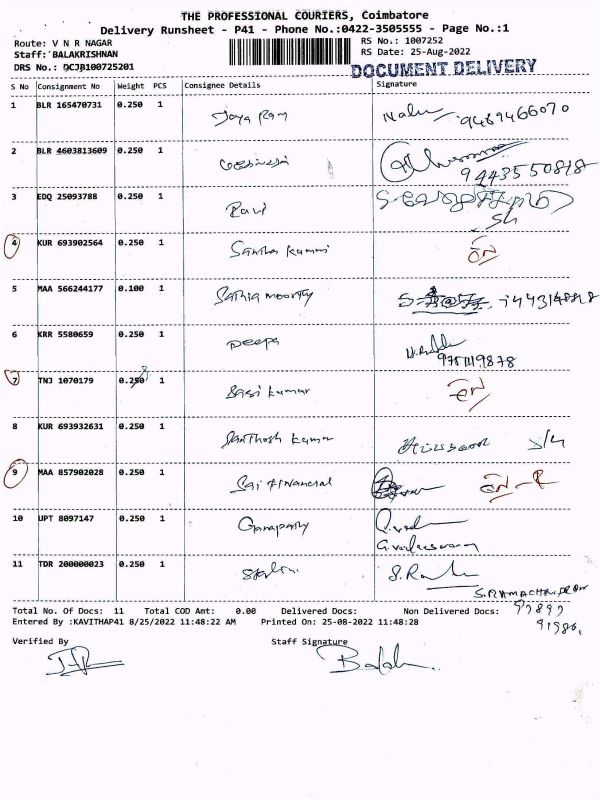 THE PROFESSIONAL COURIERS, Coimbatore
Delivery Runsheet - P41 - Phone No.:0422-3505555 - Page No.:1
Route: V N R NAGAR
RS No.: 1007252
Staff: BALAKRISHNAN
RS Date: 25-Aug-2022
DRS No.: QCJB100725201
DOCUMENT DELIVERY
S No Consignment No Weight PCS Consignee Details Signature
1 BLR 165470731 0.250 1 Jaya Ram 9489466070
2 BLR 4603813609 0.250 1 9443550818
3 EDQ 25093788 0.250 1 Ravi
4 KUR 693902564 0.250 1 Santha kumari
5 MAA 566244177 0.100 1 Sathia moorthy
6 KRR 5580659 0.250 1 Deepa
7 TNJ 1070179 0.250 1 Sasi kumar
8 KUR 693932631 0.250 1 Santhosh kumar
9 MAA 857902028 0.250 1 Sai Financial
10 UPT 8097147 0.250 1 Ganapathy
11 TDR 200000023 0.250 1 Stalin
S. RAMACHANDRAN
Total No. Of Docs: 11 Total COD Amt: 0.00 Delivered Docs: Non Delivered Docs: 97899
Entered By :KAVITHAP41 8/25/2022 11:48:22 AM Printed On: 25-08-2022 11:48:28 91986
Verified By Staff Signature